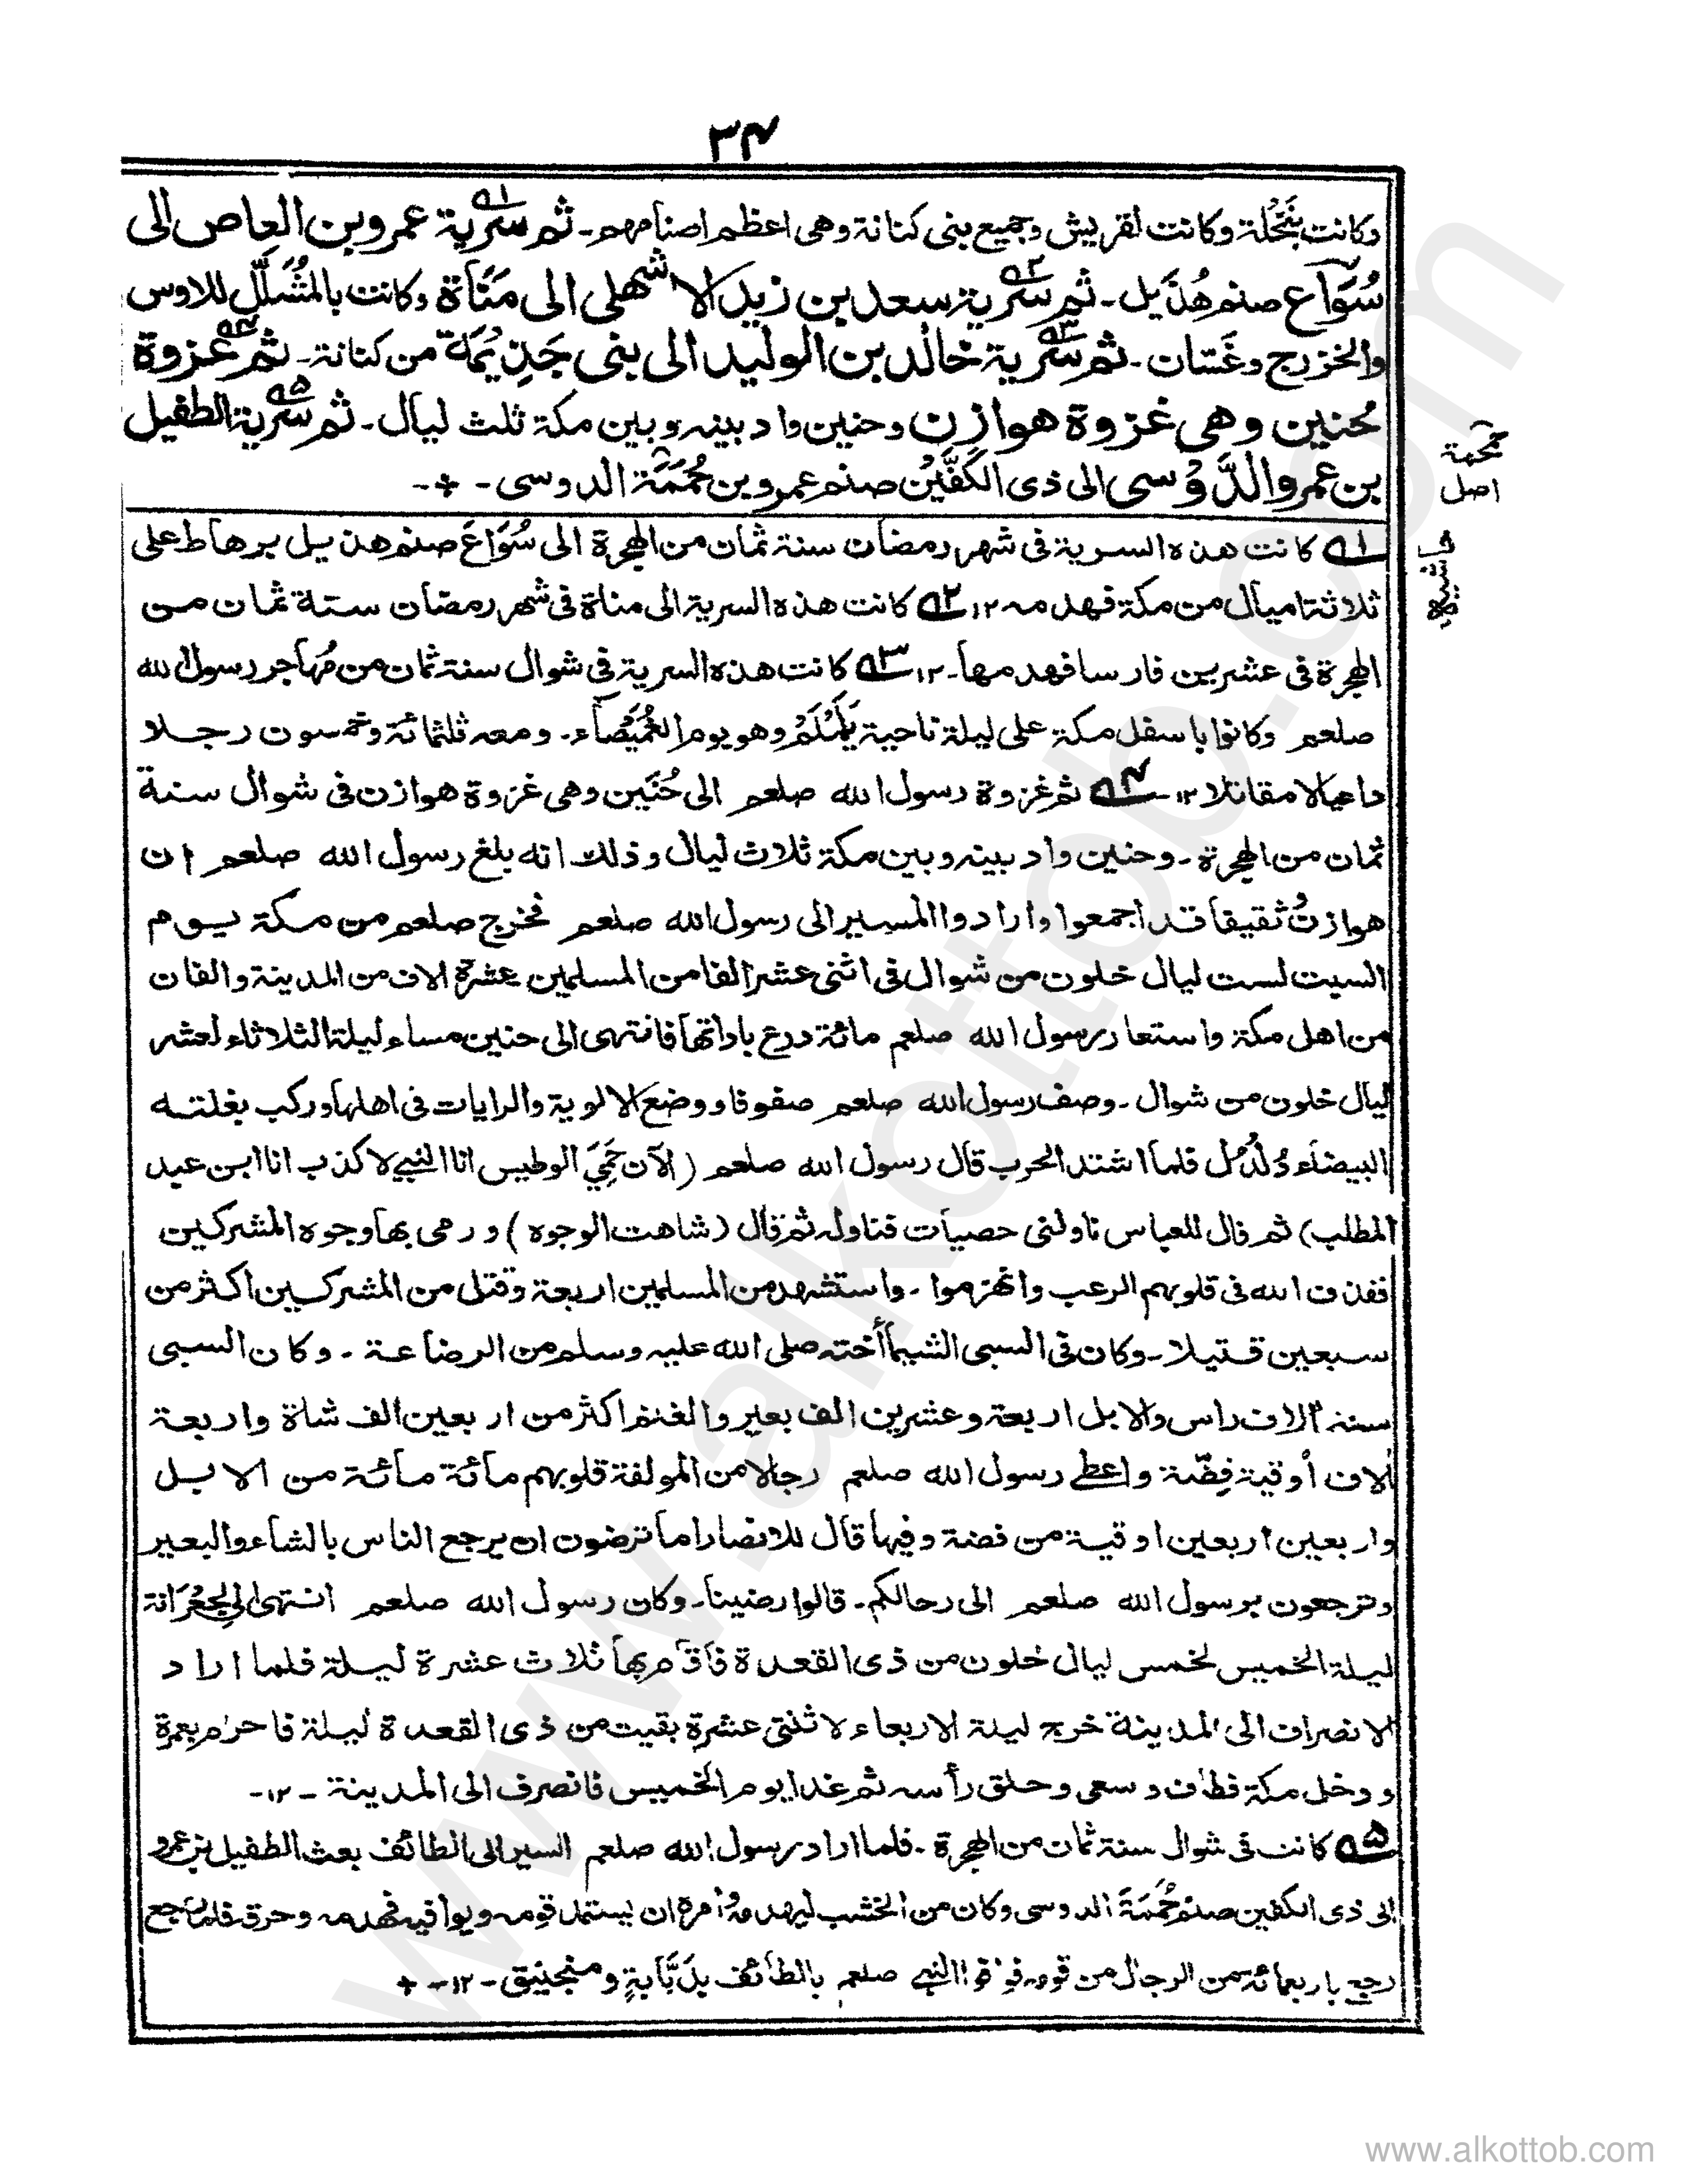 ٣٤
وكانت بنَخْلة وكانت لقريش وجميع بنى كنانة وهى اعظم اصنامهم۔ ثم سرية عمرو بن العاص الى
سُوَاع صنم هُذَيل۔ ثم سرية سعد بن زيد الاشهلى الى مَنَاة وكانت بالمُشَلَّل للاوس
والخزرج وغَسّان۔ ثم سرية خالد بن الوليد الى بنى جَذِيُمَة من كنانة۔ ثم غزوة
حُنين وهى غزوة هوازِن وحنين واد بينه وبين مكة ثلث ليال۔ ثم سرية الطفيل
بن عمرو الدَّوْسى الى ذى الكَفَّيْن صنم عمرو بن حُمَمَة الدوسى۔
حُمَمة
اصل
حاشيه
١ كانت هذه السرية فى شهر رمضان سنة ثمان من الهجرة الى سُوَاعَ صنم هذيل برهاط على
ثلاثة اميال من مكة فهدمه ١٢ ٢ كانت هذه السرية الى مناة فى شهر رمضان ستة ثمان من
الهجرة فى عشرين فارسا فهدمها۔١٢ ٣ كانت هذه السرية فى شوال سنة ثمان من مُهاجر رسول الله
صلعم وكانوا باسفل مكة على ليلة ناحية يَلَمْلَمْ وهو يوم الغُمَيْصَاء۔ ومعه ثلثمائة وخمسون رجلا
داعيا لا مقاتلا ١٢۔ ٤ ثم غزوة رسول الله صلعم الى حُنَين وهى غزوة هوازن فى شوال سنة
ثمان من الهجرة۔ وحنين واد بينه وبين مكة ثلاث ليال وذلك انه بلغ رسول الله صلعم ان
هوازن ثقيفا قد اجمعوا وارادوا المسير الى رسول الله صلعم فخرج صلعم من مكة يوم
السبت لست ليال خلون من شوال فى اثنى عشر الفا من المسلمين عشرة الاف من المدينة والفان
من اهل مكة واستعار رسول الله صلعم مائة درع باداتها فانتهى الى حنين مساء ليلة الثلاثاء لعشر
ليال خلون من شوال۔ وصف رسول الله صلعم صفوفا ووضع الالوية والرايات فى اهلها وركب بغلته
البيضاء دُلْدُل فلما اشتد الحرب قال رسول الله صلعم (الآن حَمِيَ الوطيس انا النبي لا كذب انا ابن عبد
المطلب) ثم قال للعباس ناولنى حصيات فناوله ثم قال (شاهت الوجوه) ورمى بها وجوه المشركين
فقذف الله فى قلوبهم الرعب وانهزموا۔ واستشهد من المسلمين اربعة وقتل من المشركين اكثر من
سبعين قتيلا۔ وكان فى السبى الشيما أخته صلى الله عليه وسلم من الرضاعة۔ وكان السبى
ستة آلاف راس والابل اربعة وعشرين الف بعير والغنم اكثر من اربعين الف شاة واربعة
آلاف أوقية فِضّة واعطے رسول الله صلعم رجالا من المولفة قلوبهم مائة مائة من الابل
واربعين اربعين اوقية من فضة وفيها قال للانصار اما ترضون ان يرجع الناس بالشاء والبعير
وترجعون برسول الله صلعم الى رحالكم۔ قالوا رضينا۔ وكان رسول الله صلعم انتهى الى الجعْرَانة
ليلة الخميس لخمس ليال خلون من ذى القعدة فاقام بها ثلاث عشرة ليلة فلما اراد
الانصراف الى المدينة خرج ليلة الاربعاء لاثنتى عشرة بقيت من ذى القعدة ليلة فاحرم بعمرة
ودخل مكة فطاف وسعى وحلق رأسه ثم غدا يوم الخميس فانصرف الى المدينة ۔١٢۔
٥ كانت فى شوال سنة ثمان من الهجرة۔ فلما اراد رسول الله صلعم السير الى الطائف بعث الطفيل بن عمرو
الى ذى الكفين صنم حُمَمَةَ الدوسى وكان من الخشب ليهدمه وامره ان يستمد قومه ويوافيه فهدمه وحرق
رجع باربعمائة من الرجال من قومه فوافوا النبے صلعم بالطائف بدَبَّابةٍ ومنجنيق۔١٢۔
www.alkottob.com
www.alkottob.com